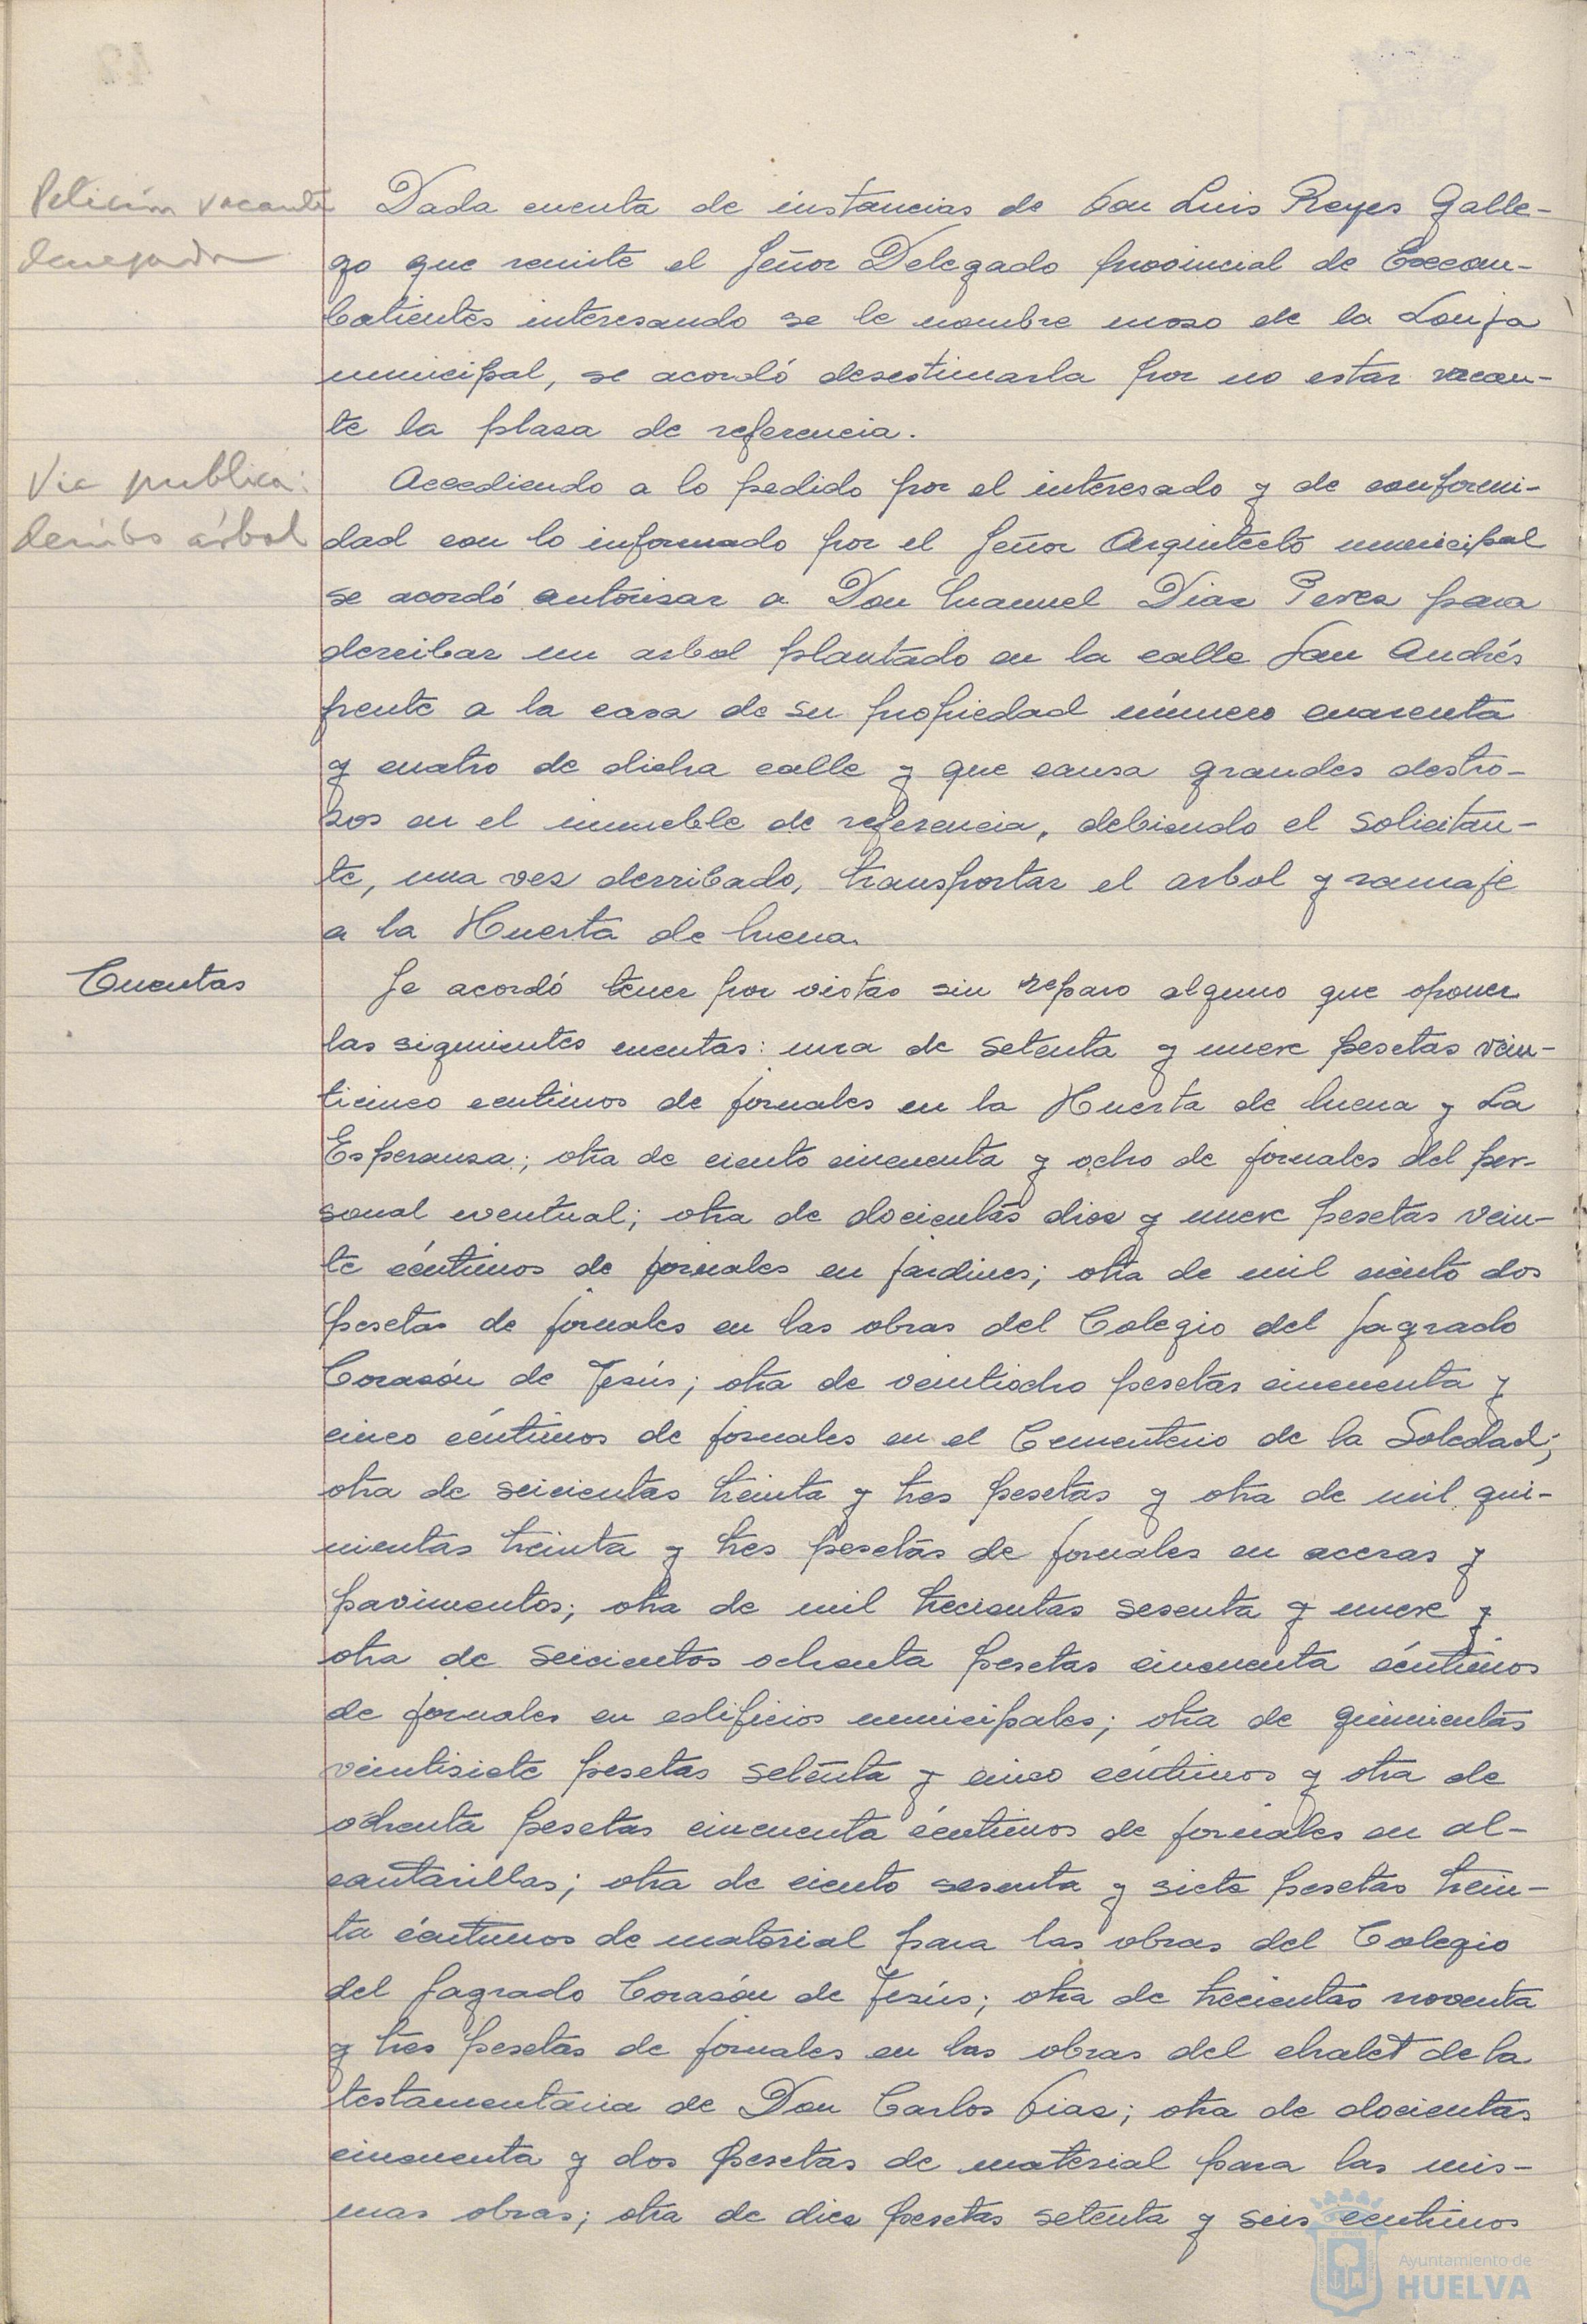 Petición vacante
denegada
Dada cuenta de instancias de Don Luis Reyes Galle-
go que remite el Señor Delegado provincial de Excom-
batientes interesando se le nombre moso de la Lonja
municipal, se acordó desestimarla por no estar vacan-
te la plasa de referencia.
Via publica:
derribo árbol
Accediendo a lo pedido por el interesado y de conformi-
dad con lo informado por el Señor Arquitecto municipal
se acordó autorisar a Don Manuel Dias Peres para
derribar un arbol plantado en la calle San Andrés
frente a la casa de su propiedad número cuarenta
y cuatro de dicha calle y que causa grandes destro-
sos en el inmueble de referencia, debiendo el solicitan-
te, una ves derribado, transportar el arbol y ramaje
a la Huerta de Mena.
Cuentas
Se acordó tener por vistas sin reparo alguno que oponer
las siguientes cuentas: una de setenta y nueve pesetas vein-
ticinco centimos de jornales en la Huerta de Mena y La
Esperansa; otra de ciento cincuenta y ocho de jornales del per-
sonal eventual; otra de docientas dies y nueve pesetas vein-
te céntimos de jornales en jardines; otra de mil ciento dos
pesetas de jornales en las obras del Colegio del Sagrado
Corasón de Jesús; otra de veintiocho pesetas cincuenta y
cinco céntimos de jornales en el Cementerio de la Soledad;
otra de seicientas treinta y tres pesetas y otra de mil qui-
nientas treinta y tres pesetas de jornales en aceras y
pavimentos; otra de mil trecientas sesenta y nueve y
otra de seicientos ochenta pesetas cincuenta céntimos
de jornales en edificios municipales; otra de quinientas
veintisiete pesetas setenta y cinco céntimos y otra de
ochenta pesetas cincuenta céntimos de jornales en al-
cantarillas; otra de ciento sesenta y siete pesetas trein-
ta céntimos de material para las obras del Colegio
del Sagrado Corasón de Jesús; otra de trecientas noventa
y tres pesetas de jornales en las obras del chalet de la
testamentaria de Don Carlos Dias; otra de docientas
cincuenta y dos pesetas de material para las mis-
mas obras; otra de dies pesetas setenta y seis centimos
Ayuntamiento de
HUELVA